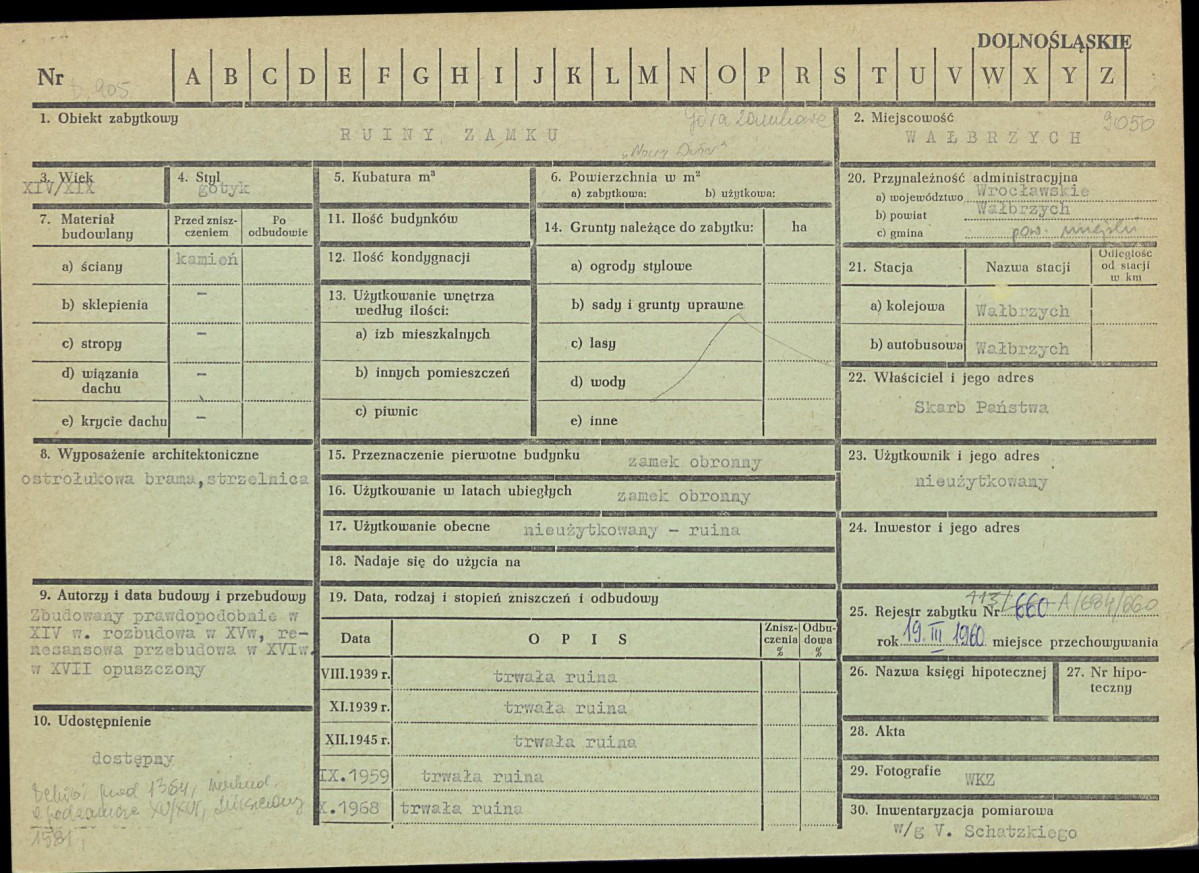 DOLNOŚLĄSKIE
Nr A B C D E F G H I J K L M N O P R S T U V W X Y Z
1. Obiekt zabytkowy
RUINY ZAMKU
2. Miejscowość
9050
WAŁBRZYCH
3. Wiek
XIV/XIX
4. Styl
gotyk
5. Kubatura m³
6. Powierzchnia w m²
a) zabytkowa: b) użytkowa:
20. Przynależność administracyjna
a) województwo Wrocławskie
b) powiat Wałbrzych
c) gmina pow. miejski
7. Materiał budowlany
Przed znisz-
czeniem
Po
odbudowie
a) ściany kamień
b) sklepienia –
c) stropy –
d) wiązania
dachu –
e) krycie dachu –
11. Ilość budynków
12. Ilość kondygnacji
13. Użytkowanie wnętrza
według ilości:
a) izb mieszkalnych
b) innych pomieszczeń
c) piwnic
14. Grunty należące do zabytku: ha
a) ogrody stylowe
b) sady i grunty uprawne
c) lasy
d) wody
e) inne
21. Stacja Nazwa stacji
Odległość
od stacji
w km
a) kolejowa Wałbrzych
b) autobusowa Wałbrzych
22. Właściciel i jego adres
Skarb Państwa
8. Wyposażenie architektoniczne
ostrołukowa brama,strzelnica
15. Przeznaczenie pierwotne budynku zamek obronny
16. Użytkowanie w latach ubiegłych zamek obronny
17. Użytkowanie obecne nieużytkowany – ruina
18. Nadaje się do użycia na
23. Użytkownik i jego adres
nieużytkowany
24. Inwestor i jego adres
9. Autorzy i data budowy i przebudowy
Zbudowany prawdopodobnie w
XIV w. rozbudowa w XVw, re-
nesansowa przebudowa w XVIw.
w XVII opuszczony
19. Data, rodzaj i stopień zniszczeń i odbudowy
Data OPIS
Znisz-
czenia
%
Odbu-
dowa
%
VIII.1939 r. trwała ruina
XI.1939 r. trwała ruina
XII.1945 r. trwała ruina
IX.1959 trwała ruina
X.1968 trwała ruina
25. Rejestr zabytku Nr 660 A/684/660
rok 19. III 1960 miejsce przechowywania
26. Nazwa księgi hipotecznej
27. Nr hipo-
teczny
28. Akta
29. Fotografie WKZ
30. Inwentaryzacja pomiarowa
w/g V. Schatzkiego
10. Udostępnienie
dostępny
1581